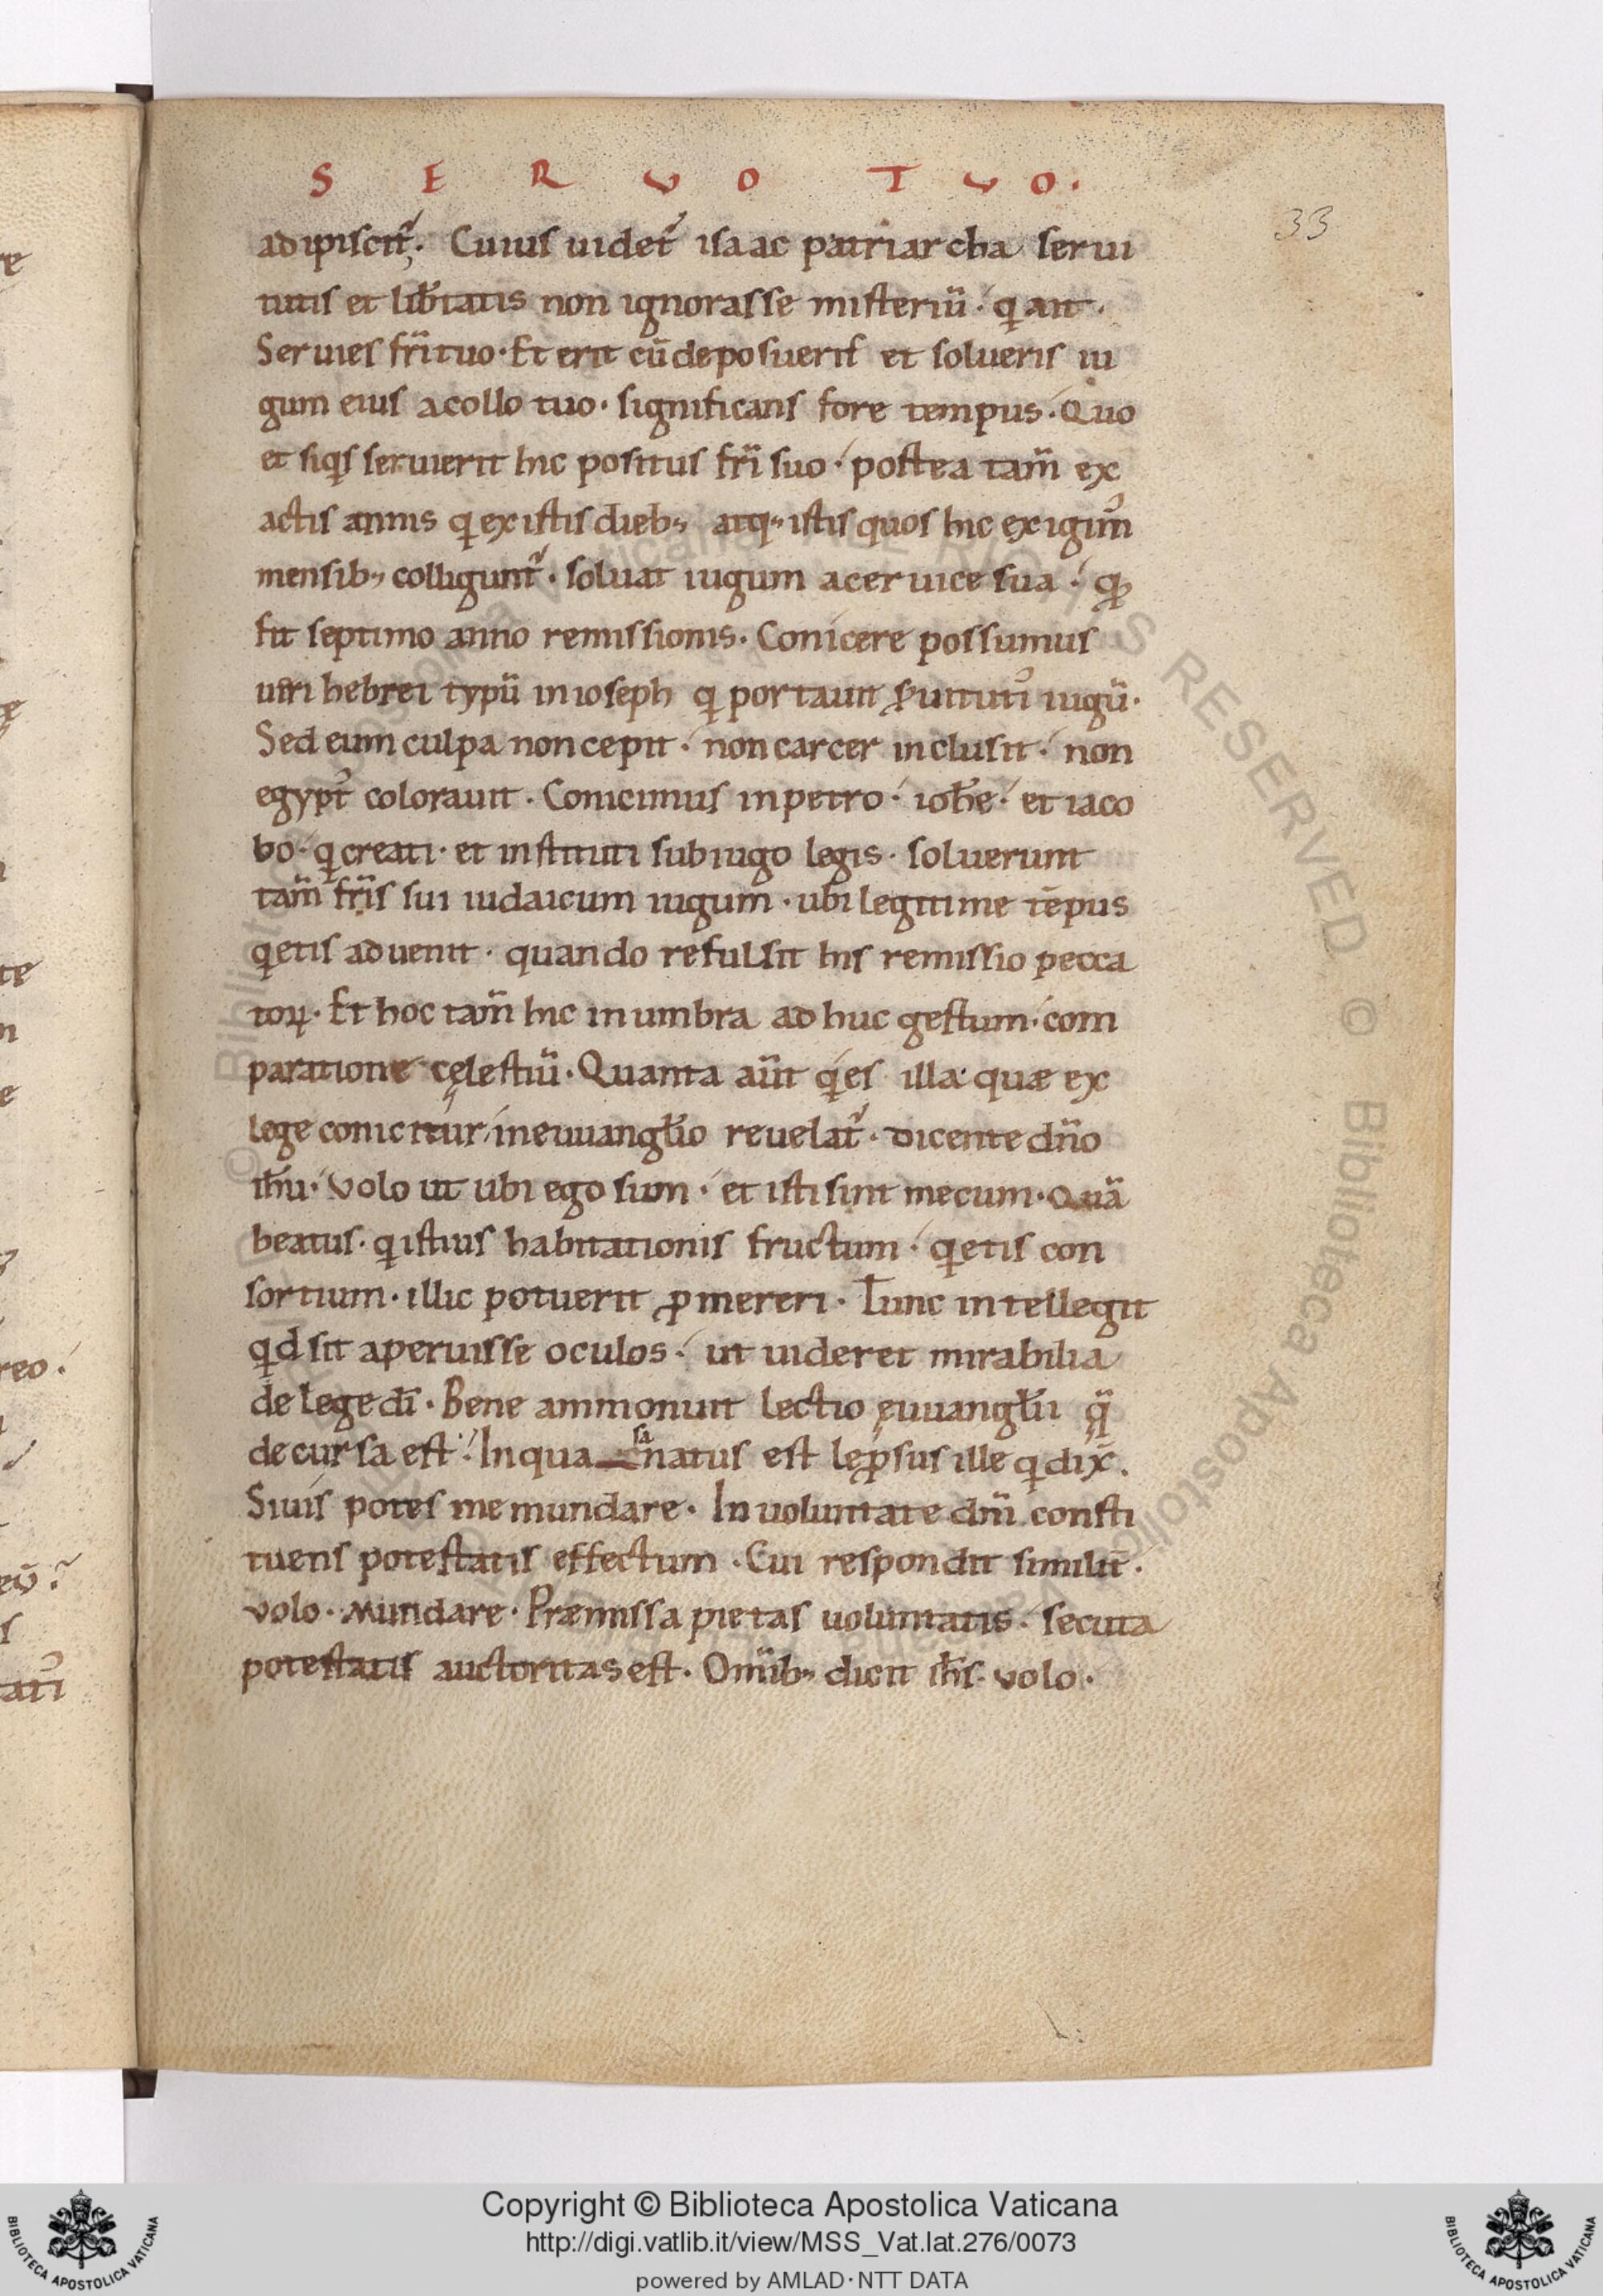 S E R V O T V O .
33
adipiscit᷑; Cuius uidet᷑ isaac patriarcha serui
tutis et lib̄tatis non ignorasse misteriū · q ait ·
Seruies fr̄i tuo · Et erit cū deposueris et solueris iu
gum eius a collo tuo · significans fore tempus · Quo
et siqͥs seruierit hic positus fr̄i suo · postea tam̄ ex
actis annis q ex istis dieb; atq; istis quos hic exigim᷒
mensib; colligunt᷑ · soluat iugum a ceruice sua · qđ
fit septimo anno remissionis · Conicere possumus
uir̄i hebrei typū in ioseph q portauit ꝑuitutī iugū ·
Sed eum culpa non cepit · non carcer inclusit · non
egypt᷒ colorauit · Conicimus in petro · ioħe · et iaco
bo · q creati · et instituti sub iugo legis · soluerunt
tam̄ fr̄is sui iudaicum iugum · ubi legitime tēpus
qͥetis aduenit · quando refulsit his remissio pecca
toꝝ · Et hoc tam̄ hic in umbra adhuc gestum · com
paratione cęlestiū · Quanta aūt qͥes illa quæ ex
lege conicitur in euuangl̄io reuelat᷑ · dicente dn̄o
ih̄u · Volo ut ubi ego sum · et isti sint mecum · Quā
beatus · q istius habitationis fructum · qͥetis con
sortium · illic potuerit ꝓmereri · Tunc intellegit
qd sit aperuisse oculos · ut uideret mirabilia
de lege dī · Bene ammonuit lectio ęuuangl̄ii q̄
decursa est · In qua sanatus est lepsus ille q dix̄ ·
Si uis potes me mundare · In uoluntate dn̄i consti
tuens potestatis effectum · Cui respondit similit̄ ·
volo · Mundare · Præmissa pietas uoluntatis · secuta
potestatis auctoritas est · Om̄ib; dicit ih̄s · volo ·
Copyright © Biblioteca Apostolica Vaticana
http://digi.vatlib.it/view/MSS_Vat.lat.276/0073
powered by AMLAD·NTT DATA
BIBLIOTECA APOSTOLICA VATICANA
BIBLIOTECA APOSTOLICA VATICANA